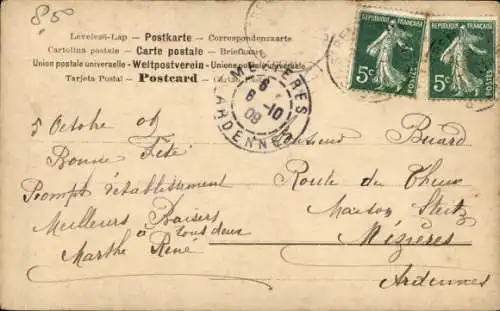 8,50
Levelezi-Lap — Postkarte — Correspondenzkarte
Cartolina postale — Carte postale — Briefkaart
Union postale universelle — Weltpostverein — Unione postale universale
Tarjeta Postal — Postcard —
REPUBLIQUE FRANÇAISE
5c
POSTES
REPUBLIQUE FRANÇAISE
5c
POSTES
MEZIERES
6
6-10
09
ARDENNES
5 Octobre 09
Bonne Fête
Prompt rétablissement
Meilleurs Baisers
à tous deux
Marthe René
Monsieur Buard
Route du Theux
Maison Steitz
Mézières
Ardennes